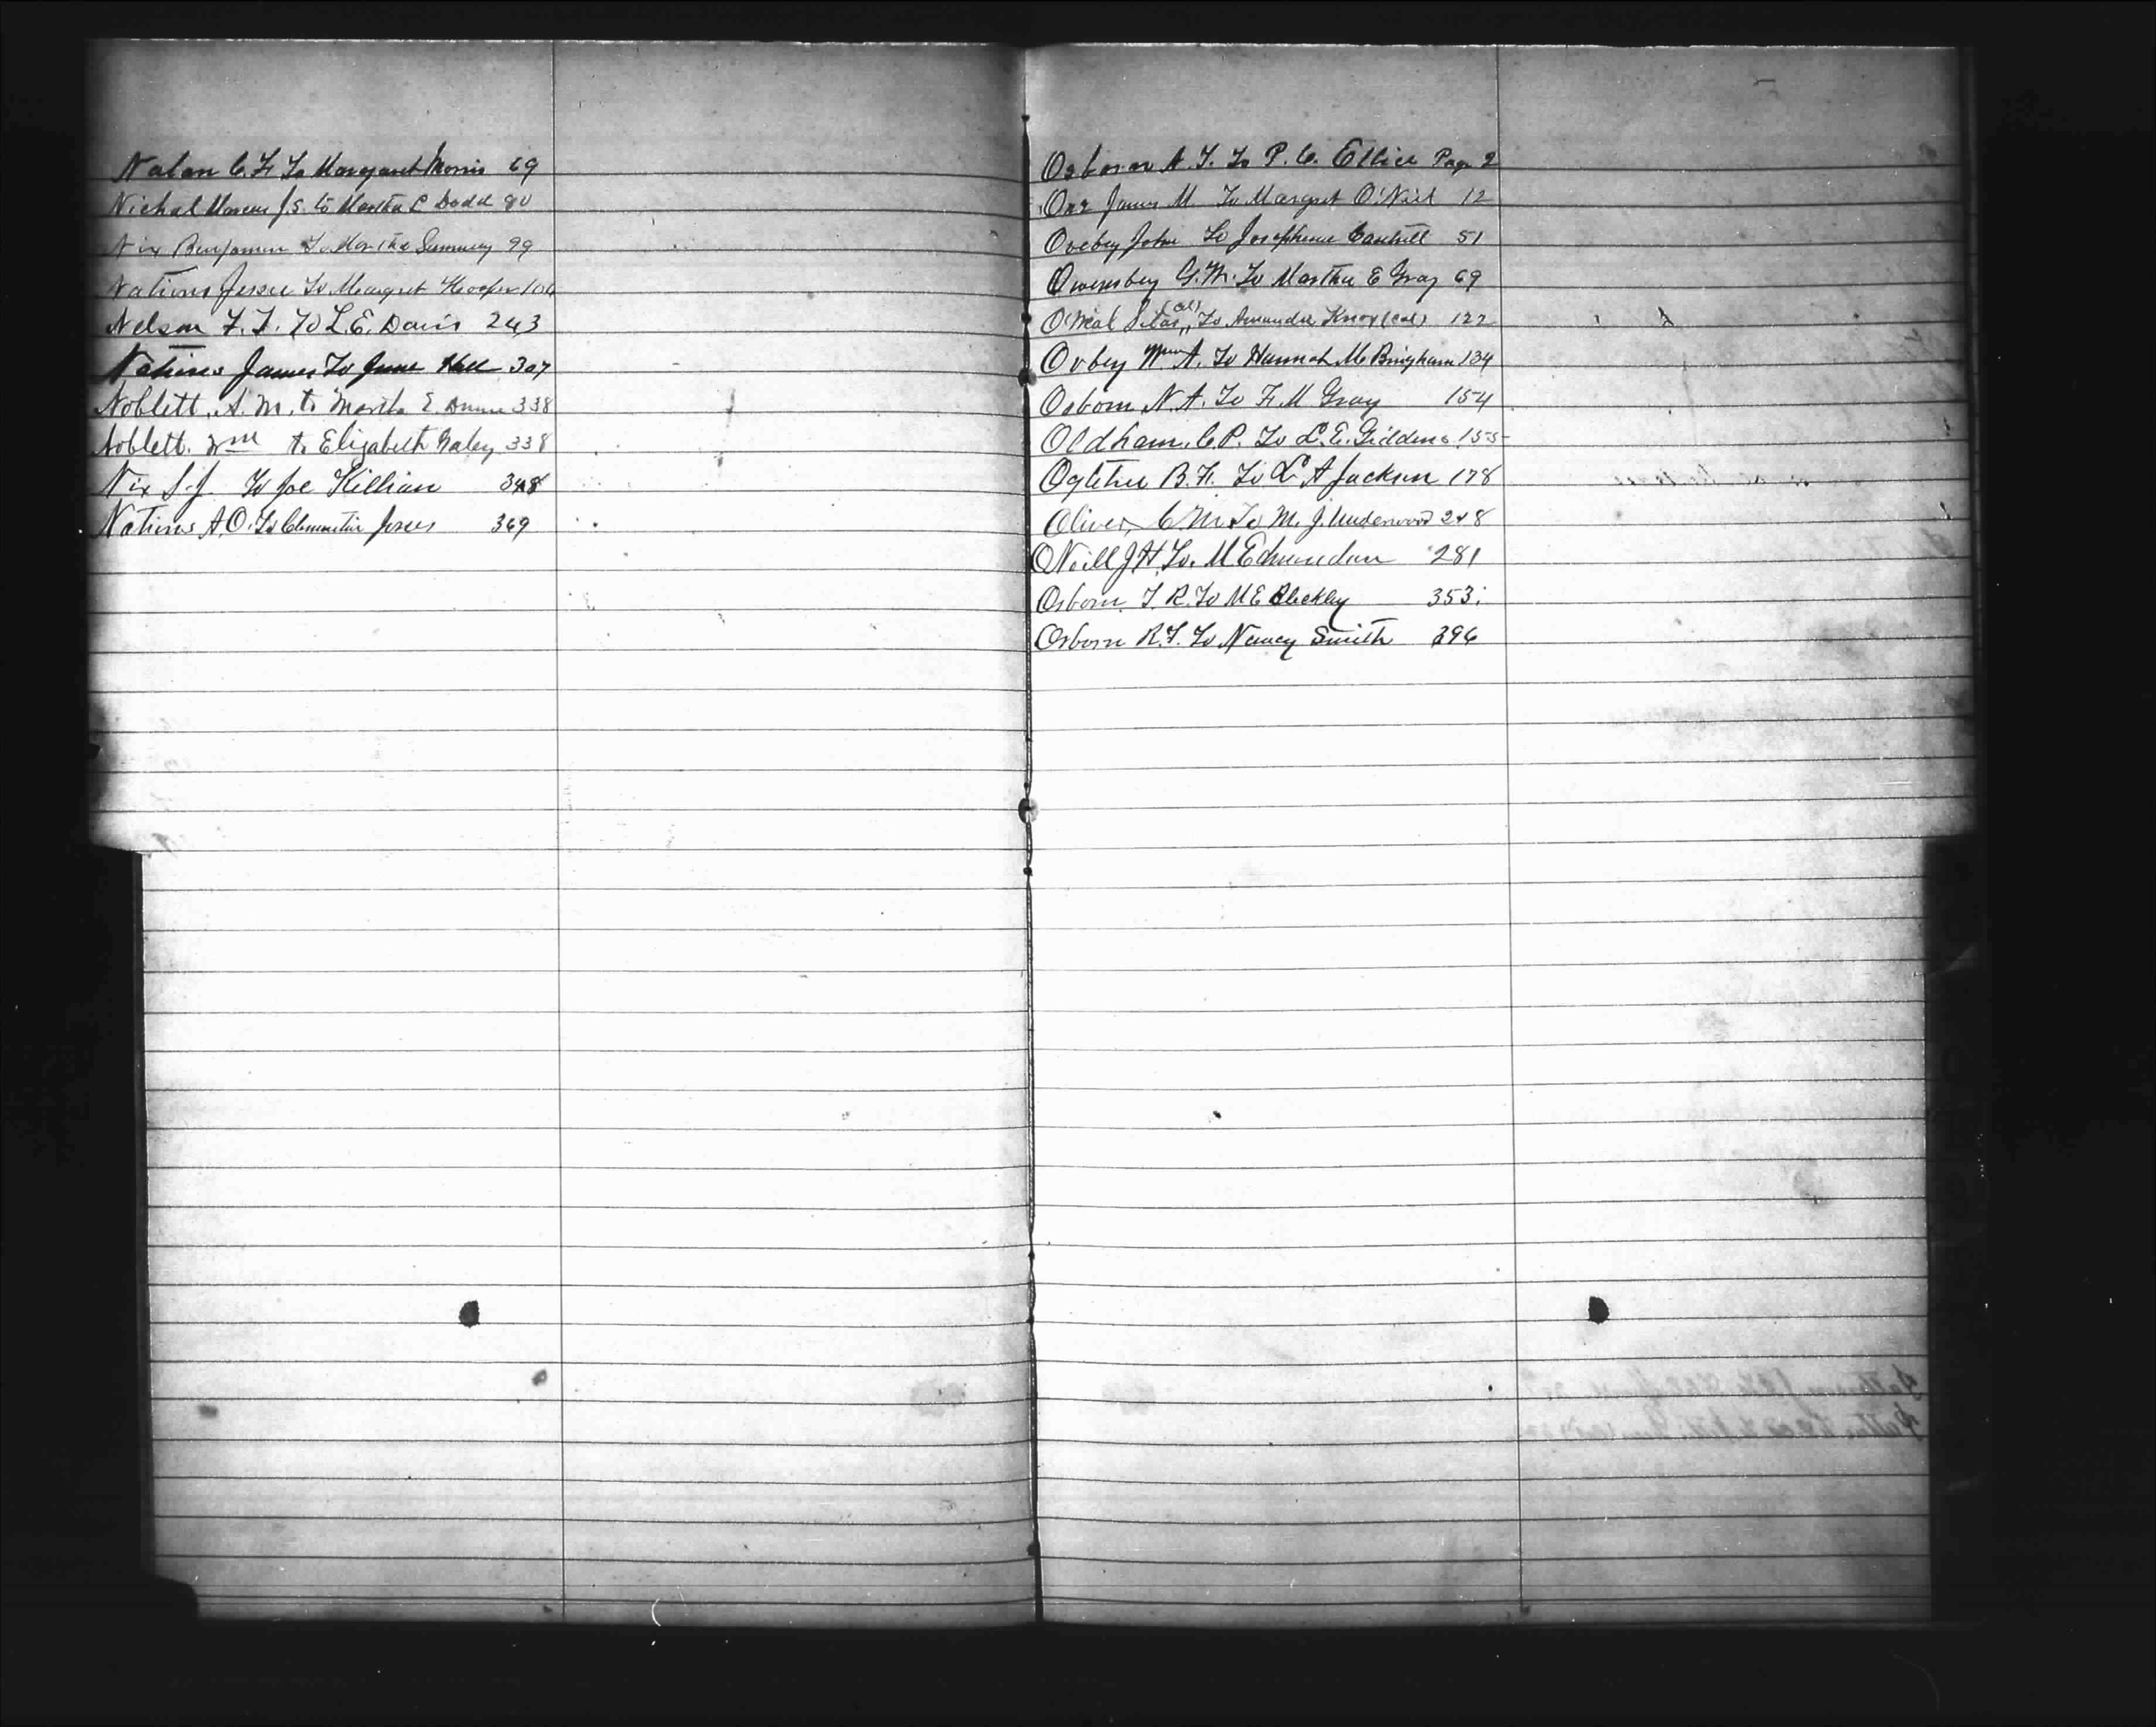 Nalan C. F. To Margaret Morris 69
Nichol Marcus J. S. to Martha L Dodd 90
Nix Benjamin To Martha Summey 99
Nations Jesse To Margret Hooper 106
Nelson F. T. To L. E. Davis 243
Nations James To Jane Hall 307
Noblett, A. M. to Martha E. Dunn 338
Noblett. Wm to Elizabeth Galey 338
Nix S. J. To Joe Killian 348
Nations A. O. To Jones 369
Osborn A. T. To P. C. Ellice Page 2
Orr James M. To Margret O'Niel 12
Ovebey John To Josephine Cantrell 51
Owensbey G. W. To Martha E Gray 69
O'Neal Silas (col) To Amanda Knox (col) 122
Ovbey Wm A. To Hannah M. Bingham 134
Osborn N. A. To F. M Gray 154
Oldham. C. P. To L. E. Giddens 155
Ogletree B. F. To L A Jackson 178
Oliver, C M To M. J. Underwood 248
ONeill J. H. To. M Edmundson 281
Osborn T. R. To M E Bleckley 353
Osborn R. T. To Nancy Smith 396